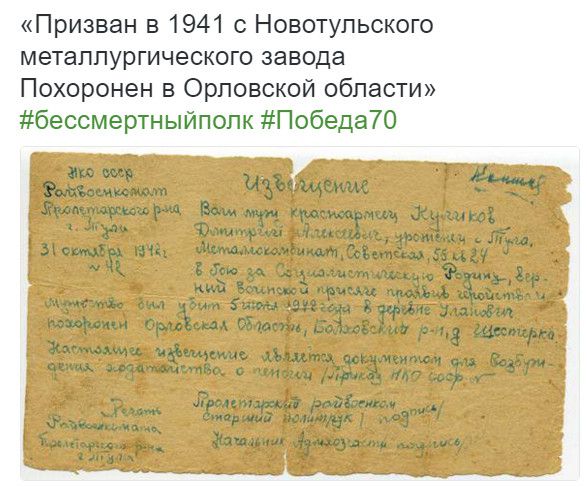 «Призван в 1941 с Новотульского
металлургического завода
Похоронен в Орловской области»
#бессмертныйполк #Победа70
НКО СССР
Райвоенкомат
Пролетарского р-на
г. Тулы
31 октября 1942 г
Извещение
Ваш муж красноармеец Куликов
Дмитрий Алексеевич, уроженец г. Тула.
Металокомбинат, Советская, 55 кв 24
в бою за Социалистическую Родину, вер-
ный воинской присяге проявив геройство и
мужество был убит 5 июля 1942 года в деревне Уланович
похоронен Орловская Область, Болховский р-н, д Шестерка
Настоящее извещение является документом для возбуж-
дения ходатайства о пенсии /Приказ НКО СССР №
Печать
Райвоенкомата
Пролетарского р-на
г Тула
Пролетарский райвоенком
старший политрук / подпись/
Начальник Админчасти подпись/